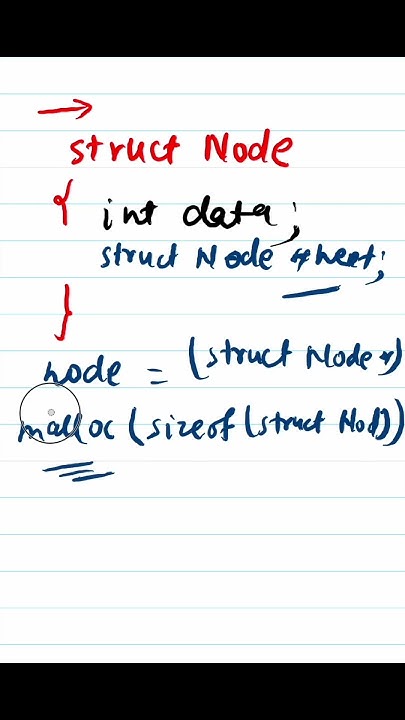 struct Node
{ int data;
struct Node *next;
}
node = (struct Node *)
malloc(sizeof(struct Nod))